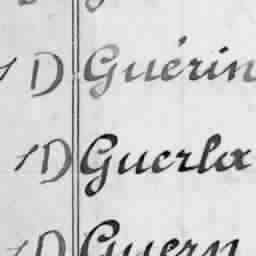 1D Guérin
1D Guerla
1D Guern